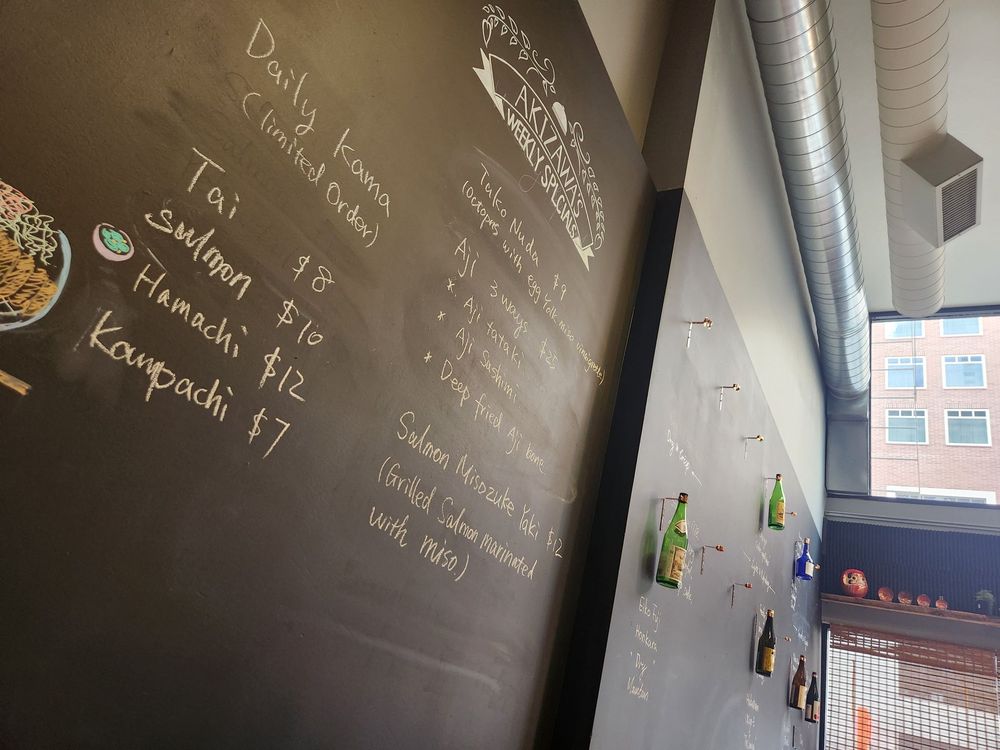 Daily Kama
(Limited Order)
Tai $8
Salmon $10
Hamachi $12
Kampachi $7
AKIZAWA'S
WEEKLY SPECIALS
Tako Nuta $9
(Octopus with egg Yolk miso vinaigrette)
Aji 3 ways $25
* Aji tataki
* Aji Sashimi
* Deep fried Aji bone
Salmon Misozuke Yaki $12
(Grilled Salmon marinated
with miso)
Dry & Crisp
Eiko Fuji
Honkara
"Dry
Mountain